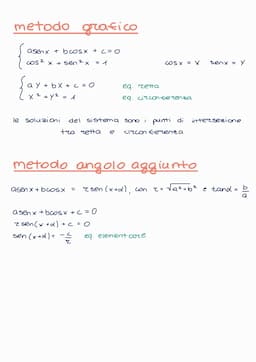 metodo grafico
asenx + bcosx + c = 0
cos² x + sen² x = 1
cosx = X senx = Y
aY + bX + c = 0 eq. retta
X² + Y² = 1 eq. circonferenza
le soluzioni del sistema sono i punti di intersezione
tra retta e circonferenza
metodo angolo aggiunto
asenx + bcosx = r sen (x+α), con r = √a²+b² e tanα = b/a
asenx + bcosx + c = 0
r sen (x+α) + c = 0
sen (x+α) = -c/r eq. elementare